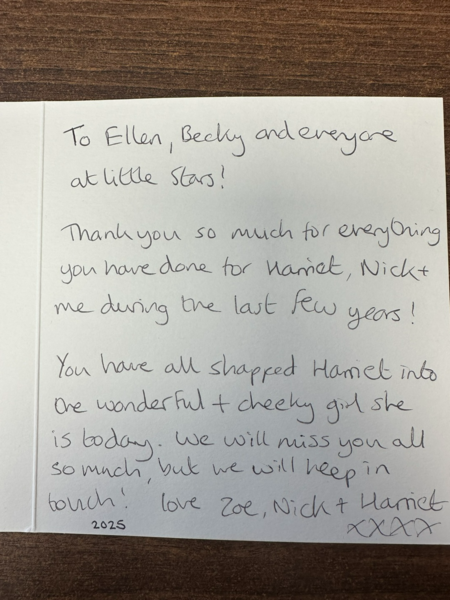 To Ellen, Becky and everyone
at little Stars!
Thank you so much for everything
you have done for Harriet, Nick +
me during the last few years!
You have all shapped Harriet into
the wonderful + cheeky girl she
is today. We will miss you all
so much, but we will keep in
touch! love Zoe, Nick + Harriet
xxxx
2025